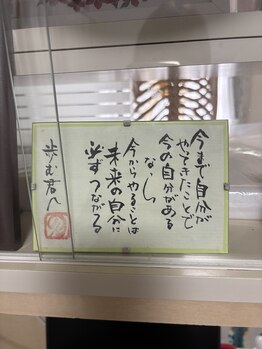 今まで自分が
やってきたことで
今の自分がある
なら
今からやることは
未来の自分に
必ずつながる
歩む君へ